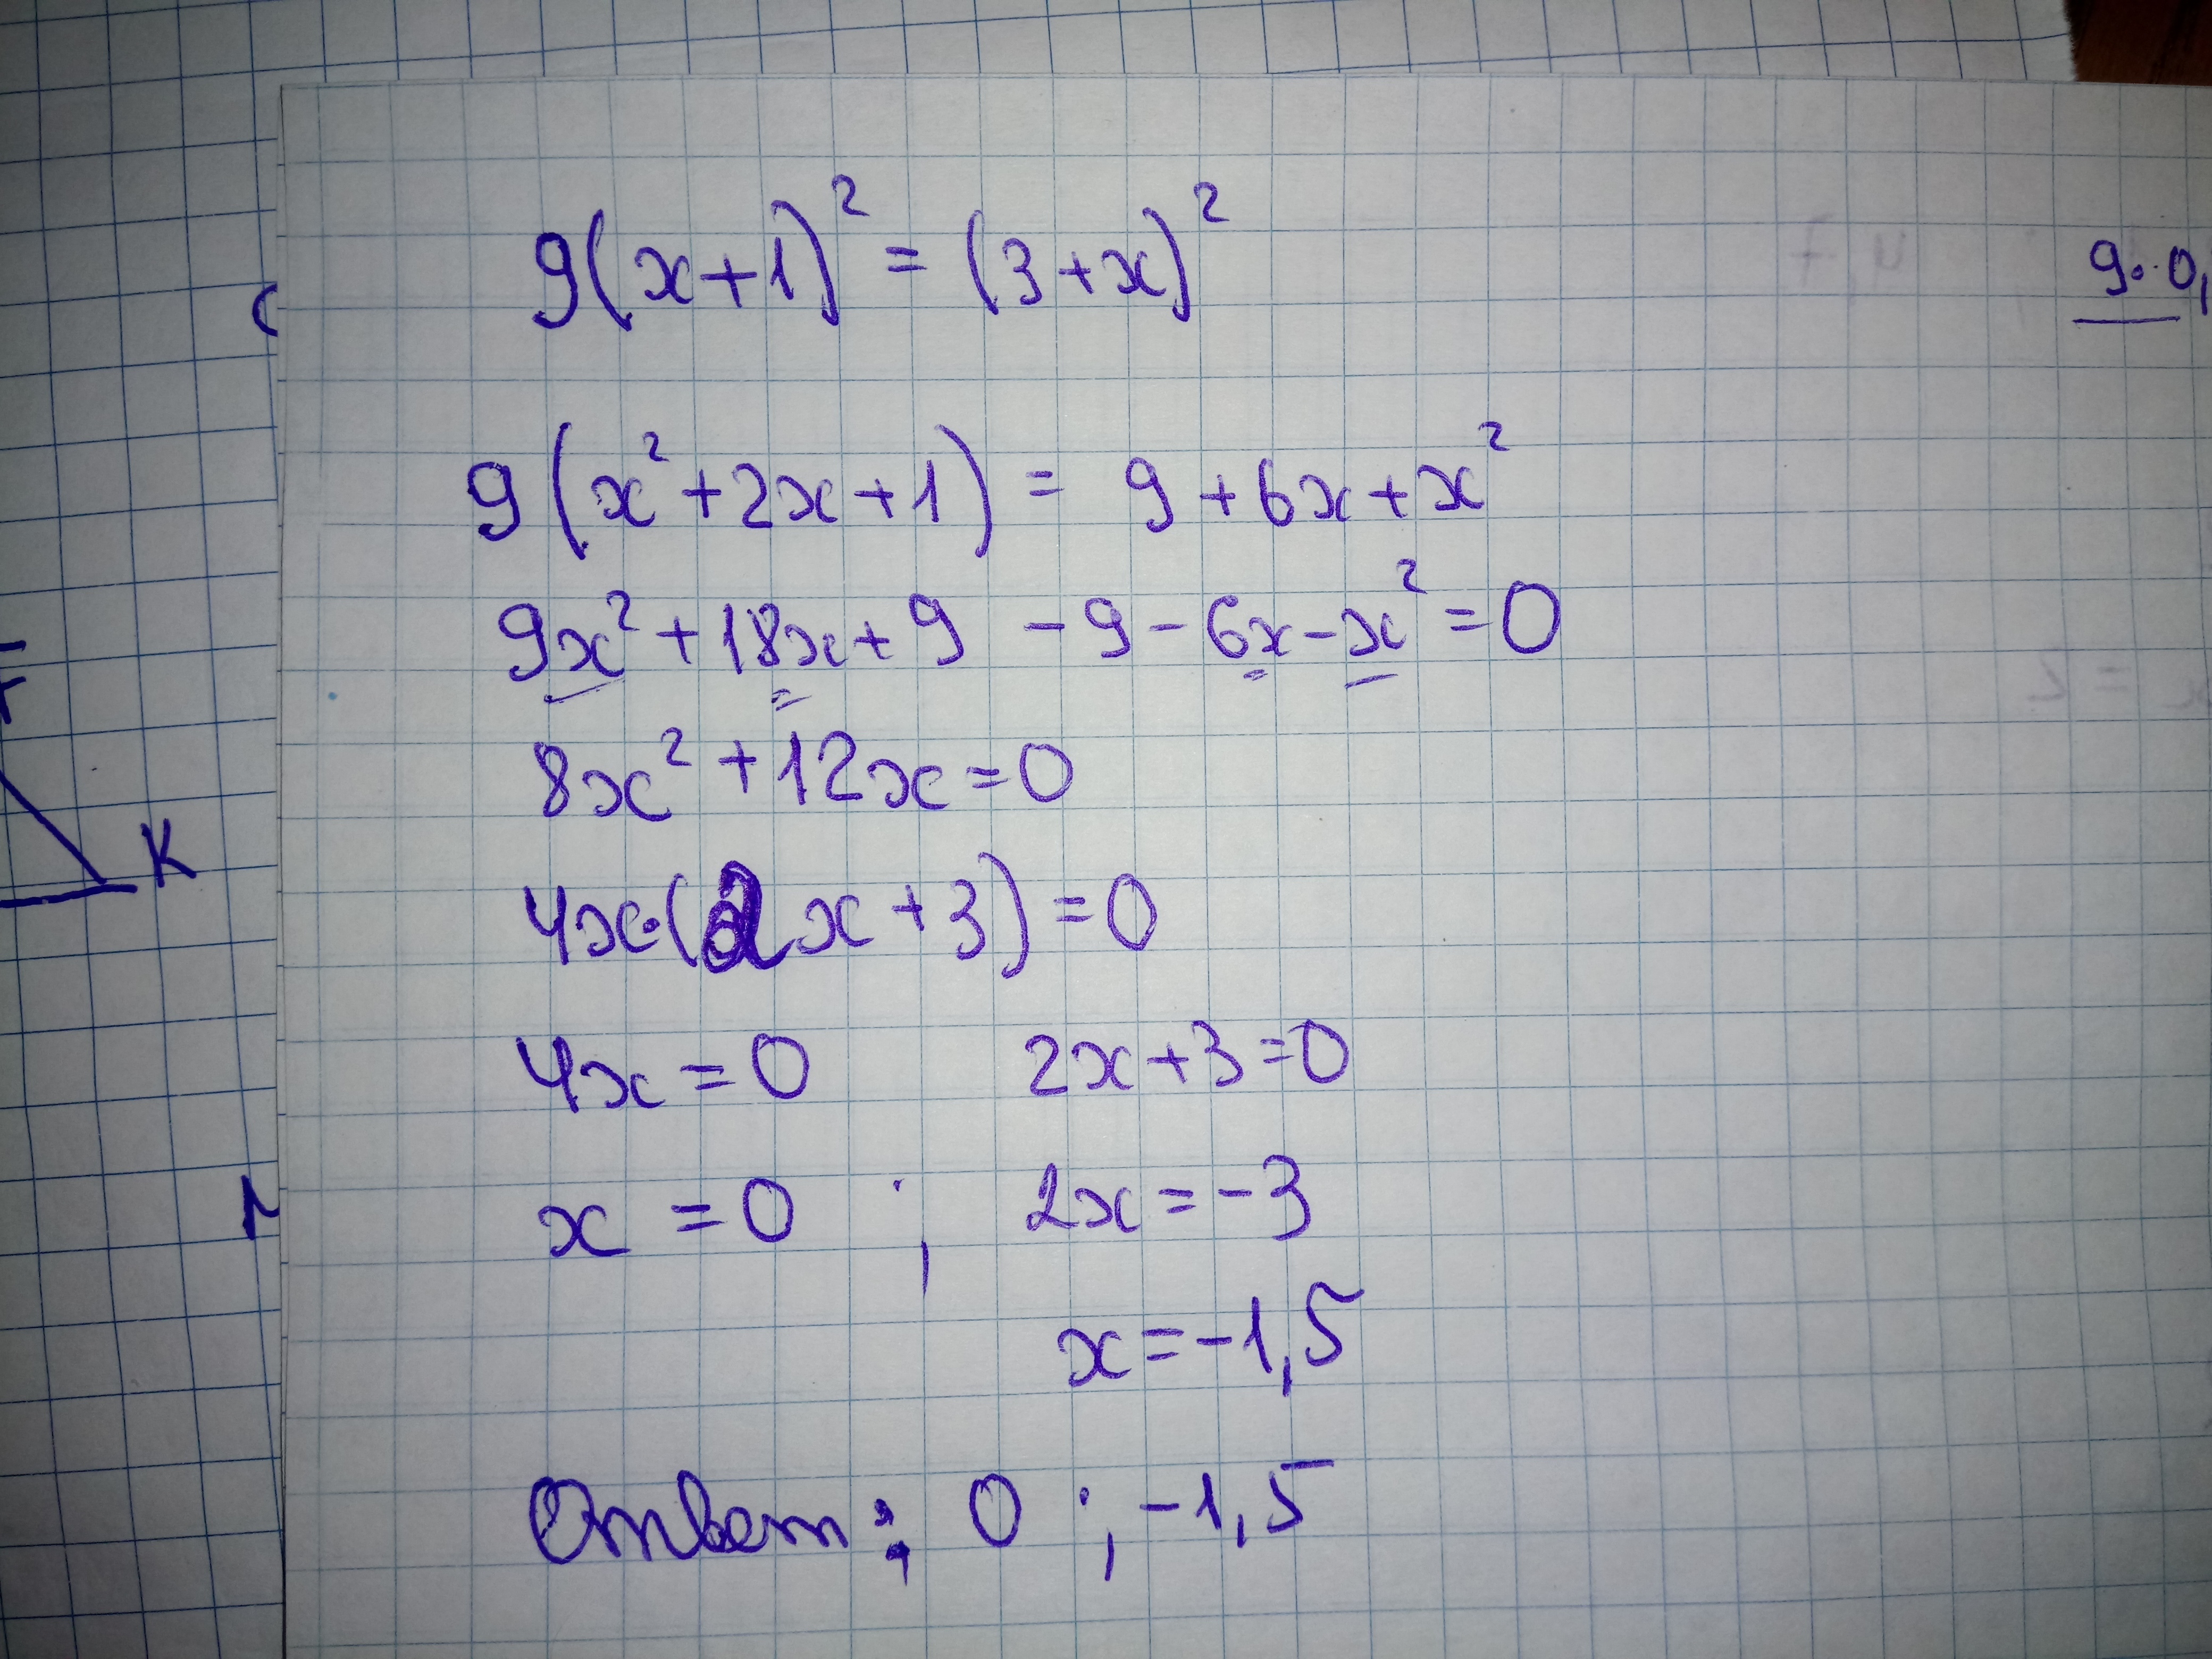 9(x+1)² = (3+x)²
9(x²+2x+1) = 9+6x+x²
9x²+18x+9 -9-6x-x²=0
8x²+12x=0
4x·(2x+3)=0
4x=0 2x+3=0
x=0 ; 2x=-3
x=-1,5
Ответ: 0 ; -1,5
9·0,
K